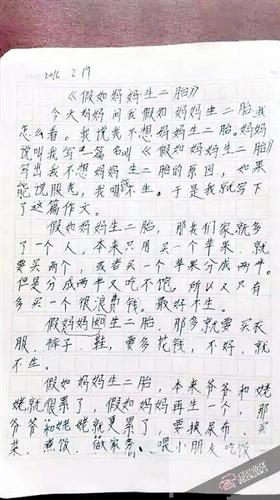 2016 2.19
《假如妈妈生二胎》
今天妈妈问我假如妈妈生二胎我
怎么看。我说我不想妈妈生二胎。妈妈
说叫我写一篇名叫《假如妈妈生二胎》
写出我不想妈妈生二胎的原因，如果
能说服她，我就不生。于是我就写下
了这篇作文。
假如妈妈生二胎，那我们家就多
了一个人，本来只用买一个苹果，就
要买两个，或者买一个苹果分成两半，
但是分成两半又吃不饱。所以又只有
多买一个很浪费钱。最好不生。
假妈妈如生二胎，那多就要买衣
服、裤子、鞋，要多花钱，不好，就
不生。
假如妈妈生二胎，本来爷爷和姥
姥就很累了，假如妈妈再生一个，那
爷爷和姥姥就更累了，要换尿布、买
菜、煮饭、做家务、喂小朋友吃饭